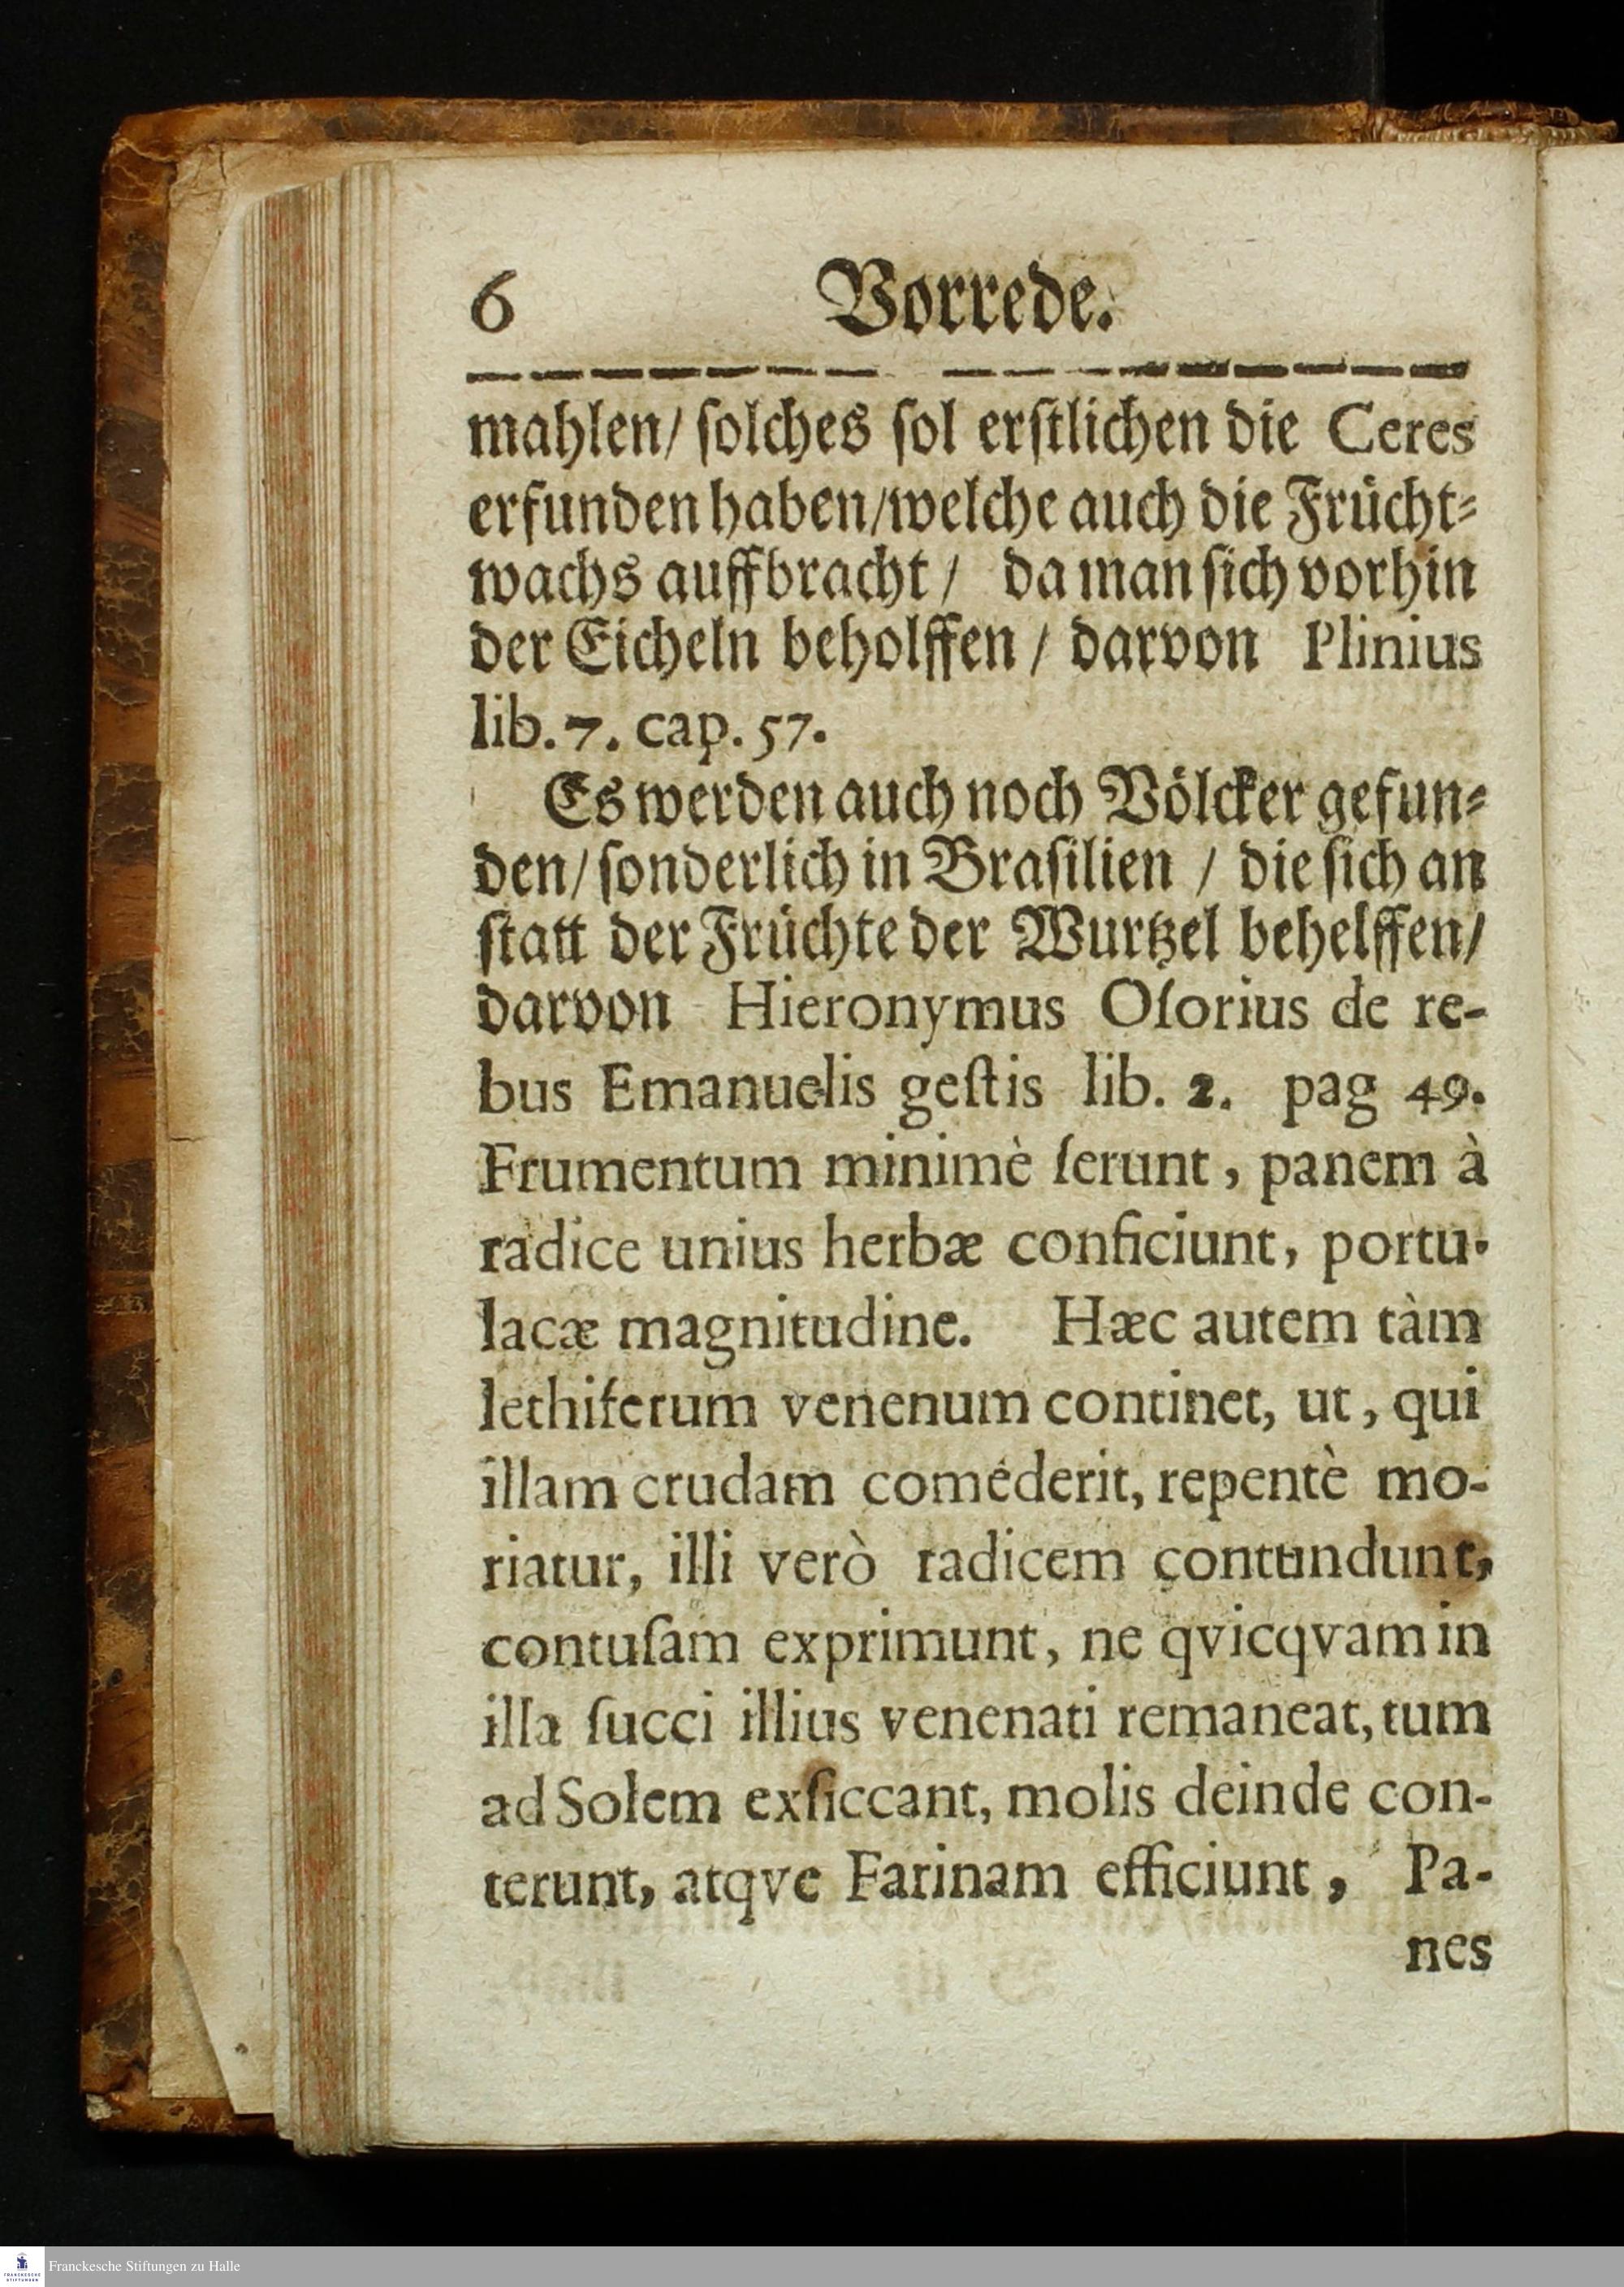 6 Vorrede.
mahlen/ ſolches ſol erſtlichen die Ceres
erfunden haben/welche auch die Frücht-
wachs auffbracht / da man ſich vorhin
der Eicheln beholffen / darvon Plinius
lib. 7. cap. 57.
Es werden auch noch Völcker gefun-
den/ ſonderlich in Braſilien / die ſich an
ſtatt der Früchte der Wurtzel behelffen/
darvon Hieronymus Oſorius de re-
bus Emanuelis geſtis lib. 2. pag 49.
Frumentum minimè ſerunt, panem à
radice unius herbæ conficiunt, portu-
lacæ magnitudine. Hæc autem tàm
lethiferum venenum continet, ut, qui
illam crudam coméderit, repentè mo-
riatur, illi verò radicem contundunt,
contuſam exprimunt, ne qvicqvam in
illa ſucci illius venenati remaneat, tum
ad Solem exſiccant, molis deinde con-
terunt, atqve Farinam efficiunt, Pa-
nes
FRANCKESCHE
STIFTUNGEN
Franckesche Stiftungen zu Halle